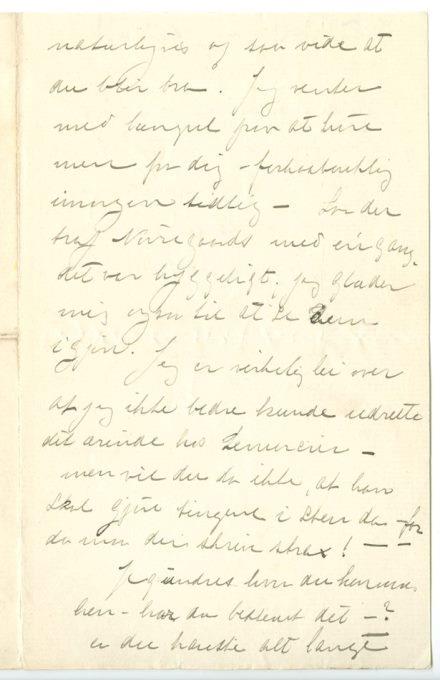 naturligvis og saa vide at
du blir bra. Jeg venter
med længsel paa at høre
mer fra dig – forhaabentlig
imorgen tidlig – Saa der
traf Nørregaards med én gang.
det var hyggeligt. jeg glæder
mig ogsaa til at se Dem
igjen. Jeg er virkelig lei over
at jeg ikke bedre kunde udrette
dit ærinde hos Lemercier –
men vil du da ikke, at han
skal gjøre tingene i Sten da – for
da maa du skrive strax! – –
Jeg undres hvor du kommer
hen – har du bestemt det – ?
er du kanske alt langt